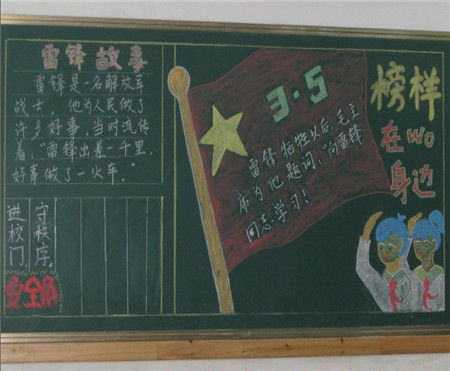 雷锋故事
雷锋是一名解放军
战士，他为人民做了
许多好事，当时流传
着，“雷锋出差一千里，
好事做了一火车。”
进校门，
守秩序。
安全
3·5
雷锋牺牲以后，毛主
席为他题词：“向雷锋
同志学习！
榜样
在wo
身边